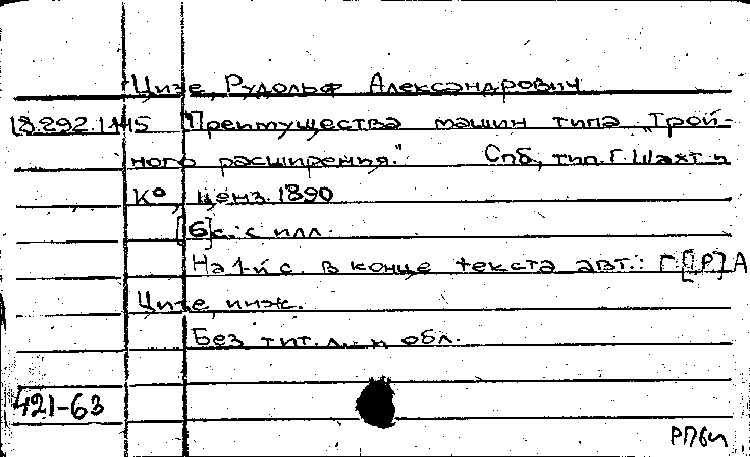 Цизе, Рудольф Александрович
18.292.1.145 Преимущества машин типа „Трой-
ного расширения." Спб, тип. Г. Шахт и
К°, ценз. 1890
[6]с. с илл.
На 1-й с. в конце текста авт.: Г[Р]А
Цизе, инж.
Без тит. л. и обл.
421-63